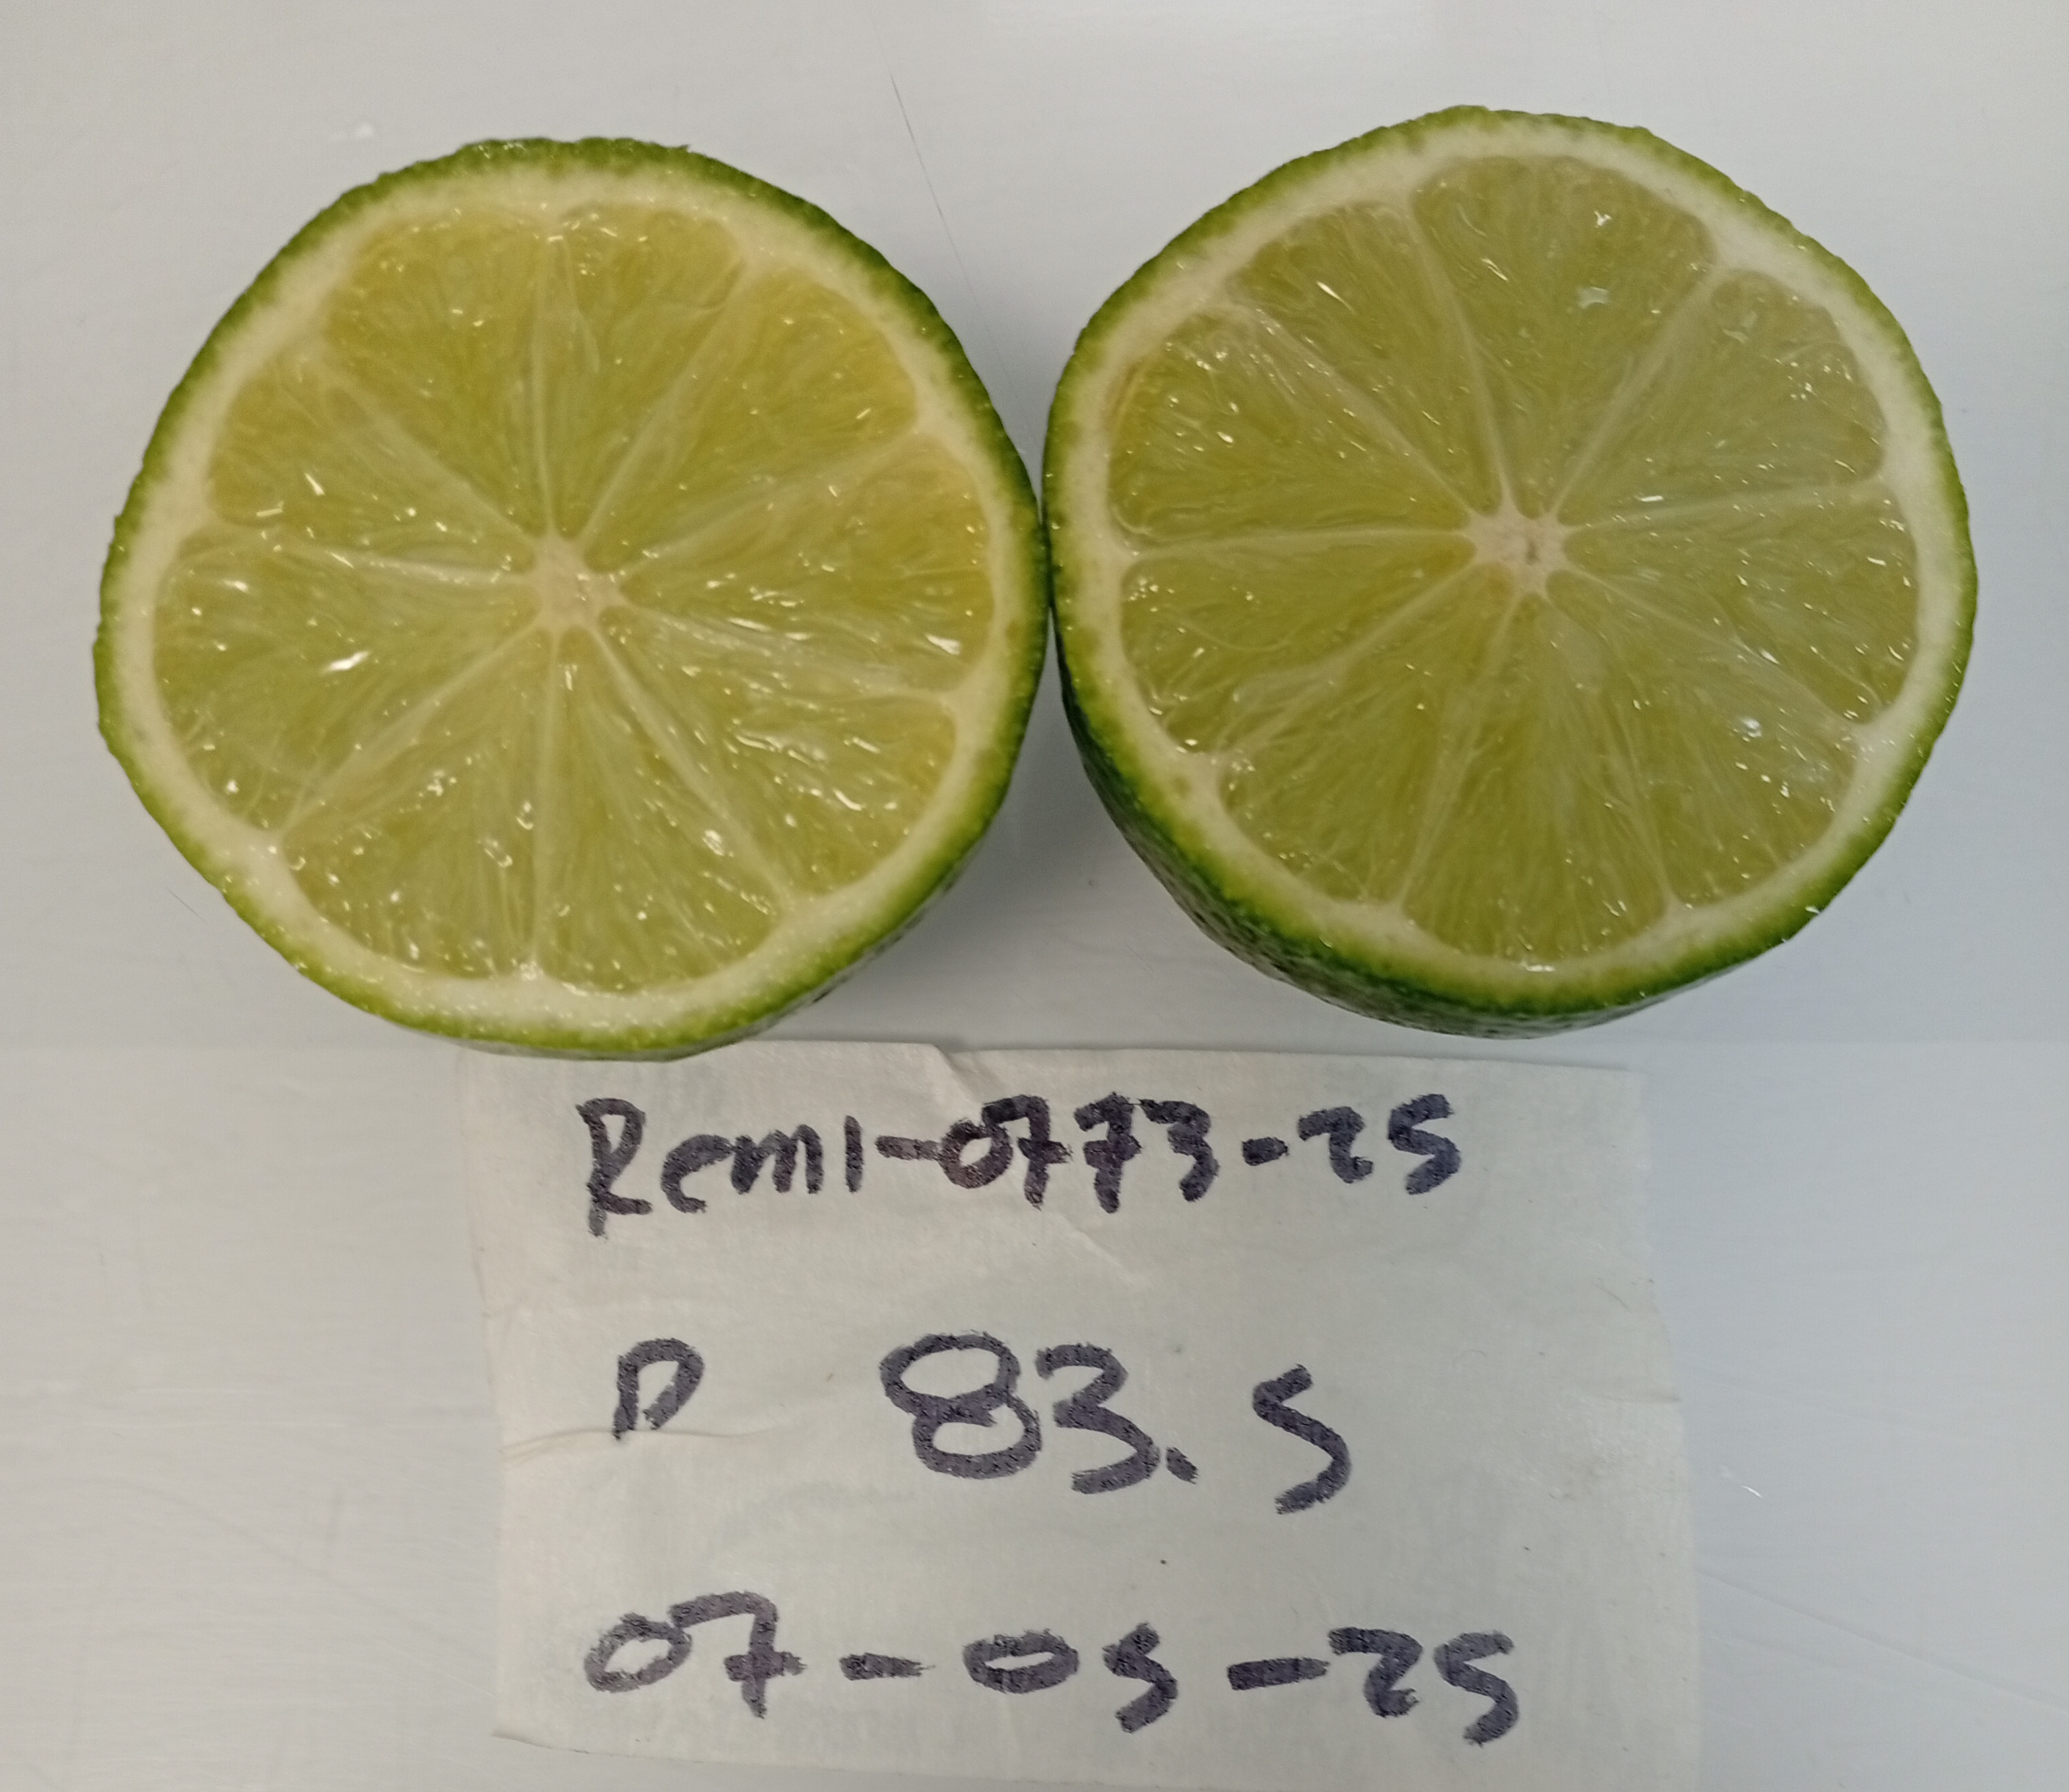 Remi-0773-25
D 83.5
07-05-25